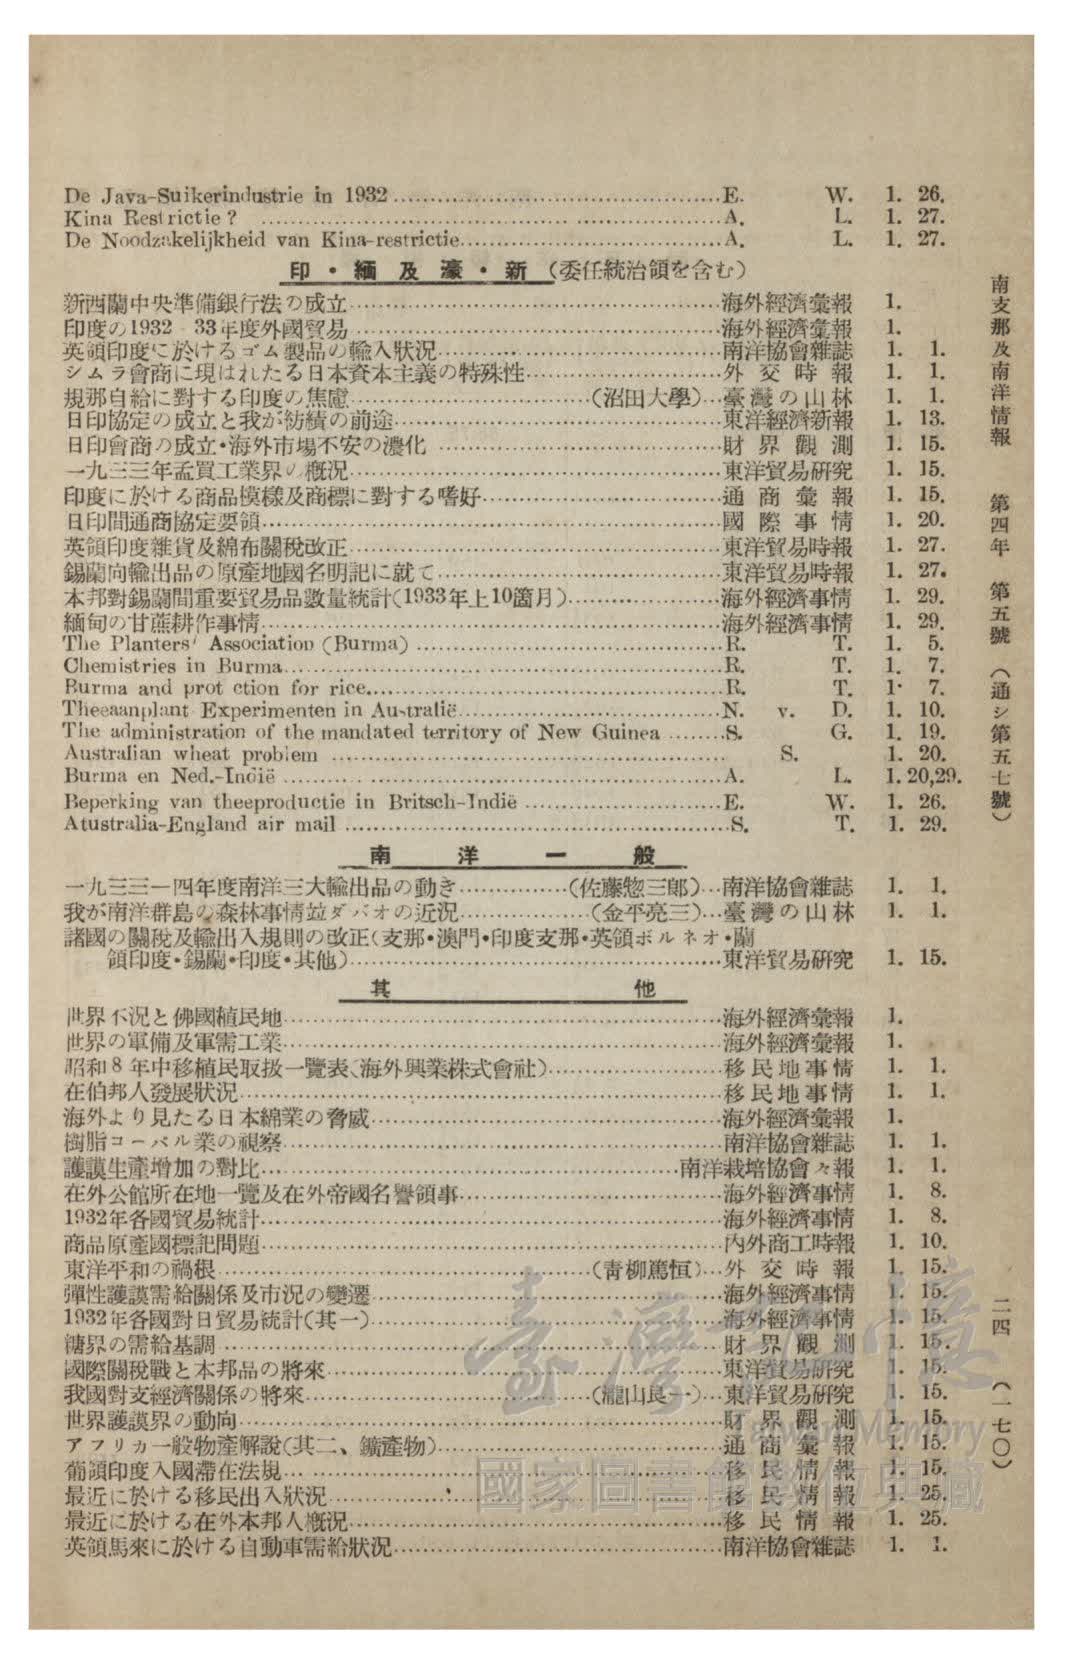 De Java-Suikerindustrie in 1932 ........ E. W. 1. 26.
Kina Restrictie? ........ A. L. 1. 27.
De Noodzakelijkheid van Kina-restrictie ........ A. L. 1. 27.
印・緬及濠・新（委任統治領を含む）
新西蘭中央準備銀行法の成立 ........ 海外經濟彙報 1.
印度の1932-33年度外國貿易 ........ 海外經濟彙報 1.
英領印度に於けるゴム製品の輸入狀況 ........ 南洋協會雜誌 1. 1.
シムラ會商に現はれたる日本資本主義の特殊性 ........ 外交時報 1. 1.
規那自給に對する印度の焦慮 ........（沼田大學）… 臺灣の山林 1. 1.
日印協定の成立と我が紡績の前途 ........ 東洋經濟新報 1. 13.
日印會商の成立・海外市場不安の濃化 ........ 財界觀測 1. 15.
一九三三年孟買工業界の槪況 ........ 東洋貿易硏究 1. 15.
印度に於ける商品模樣及商標に對する嗜好 ........ 通商彙報 1. 15.
日印間通商協定要領 ........ 國際事情 1. 20.
英領印度雜貨及綿布關稅改正 ........ 東洋貿易時報 1. 27.
錫蘭向輸出品の原產地國名明記に就て ........ 東洋貿易時報 1. 27.
本邦對錫蘭間重要貿易品數量統計（1933年上10箇月） ........ 海外經濟事情 1. 29.
緬甸の甘蔗耕作事情 ........ 海外經濟事情 1. 29.
The Planters' Association (Burma) ........ R. T. 1. 5.
Chemistries in Burma ........ R. T. 1. 7.
Burma and prot ction for rice ........ R. T. 1. 7.
Theeaanplant Experimenten in Australië ........ N. v. D. 1. 10.
The administration of the mandated territory of New Guinea ........ S. G. 1. 19.
Australian wheat problem ........ S. 1. 20.
Burma en Ned.-Indië ........ A. L. 1. 20,29.
Beperking van theeproductie in Britsch-Indië ........ E. W. 1. 26.
Atustralia-England air mail ........ S. T. 1. 29.
南洋一般
一九三三一四年度南洋三大輸出品の動き ........（佐藤惣三郞）… 南洋協會雜誌 1. 1.
我が南洋群島の森林事情竝ダバオの近況 ........（金平亮三）… 臺灣の山林 1. 1.
諸國の關稅及輸出入規則の改正（支那・澳門・印度支那・英領ボルネオ・蘭
領印度・錫蘭・印度・其他） ........ 東洋貿易硏究 1. 15.
其他
世界不況と佛國植民地 ........ 海外經濟彙報 1.
世界の軍備及軍需工業 ........ 海外經濟彙報 1.
昭和8年中移植民取扱一覽表（海外興業株式會社） ........ 移民地事情 1. 1.
在伯邦人發展狀況 ........ 移民地事情 1. 1.
海外より見たる日本綿業の脅威 ........ 海外經濟彙報 1.
樹脂コーパル業の視察 ........ 南洋協會雜誌 1. 1.
護謨生產增加の對比 ........ 南洋栽培協會々報 1. 1.
在外公館所在地一覽及在外帝國名譽領事 ........ 海外經濟事情 1. 8.
1932年各國貿易統計 ........ 海外經濟事情 1. 8.
商品原產國標記問題 ........ 內外商工時報 1. 10.
東洋平和の禍根 ........（靑柳篤恒）… 外交時報 1. 15.
彈性護謨需給關係及市況の變遷 ........ 海外經濟事情 1. 15.
1932年各國對日貿易統計（其一） ........ 海外經濟事情 1. 15.
糖界の需給基調 ........ 財界觀測 1. 15.
國際關稅戰と本邦品の將來 ........ 東洋貿易硏究 1. 15.
我國對支經濟關係の將來 ........（瀧山良一）… 東洋貿易硏究 1. 15.
世界護謨界の動向 ........ 財界觀測 1. 15.
アフリカ一般物產解說（其二、鑛產物） ........ 通商彙報 1. 15.
葡領印度入國滯在法規 ........ 移民情報 1. 15.
最近に於ける移民出入狀況 ........ 移民情報 1. 25.
最近に於ける在外本邦人槪況 ........ 移民情報 1. 25.
英領馬來に於ける自動車需給狀況 ........ 南洋協會雜誌 1. 1.
南支那及南洋情報 第四年 第五號（通シ第五七號）
二四（一七〇）
臺灣記憶
Taiwan Memory
國家圖書館數位典藏